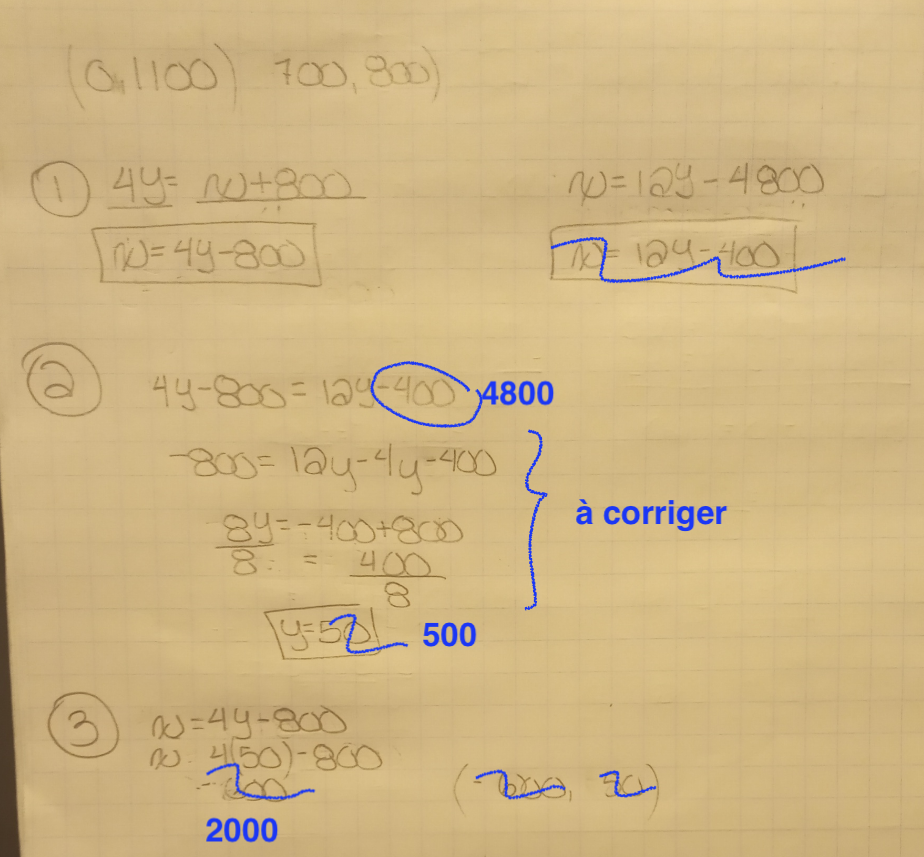 (0,1100) 700, 800)
① 4y= x+800
x=12y-4800
x=4y-800
x= 12y-400
② 4y-800=12y-400 4800
-800=12y-4y-400
8y=-400+800
à corriger
8 = 400
8
y=50 500
③ x=4y-800
x 4(50)-800
-600
(-600, 50)
2000